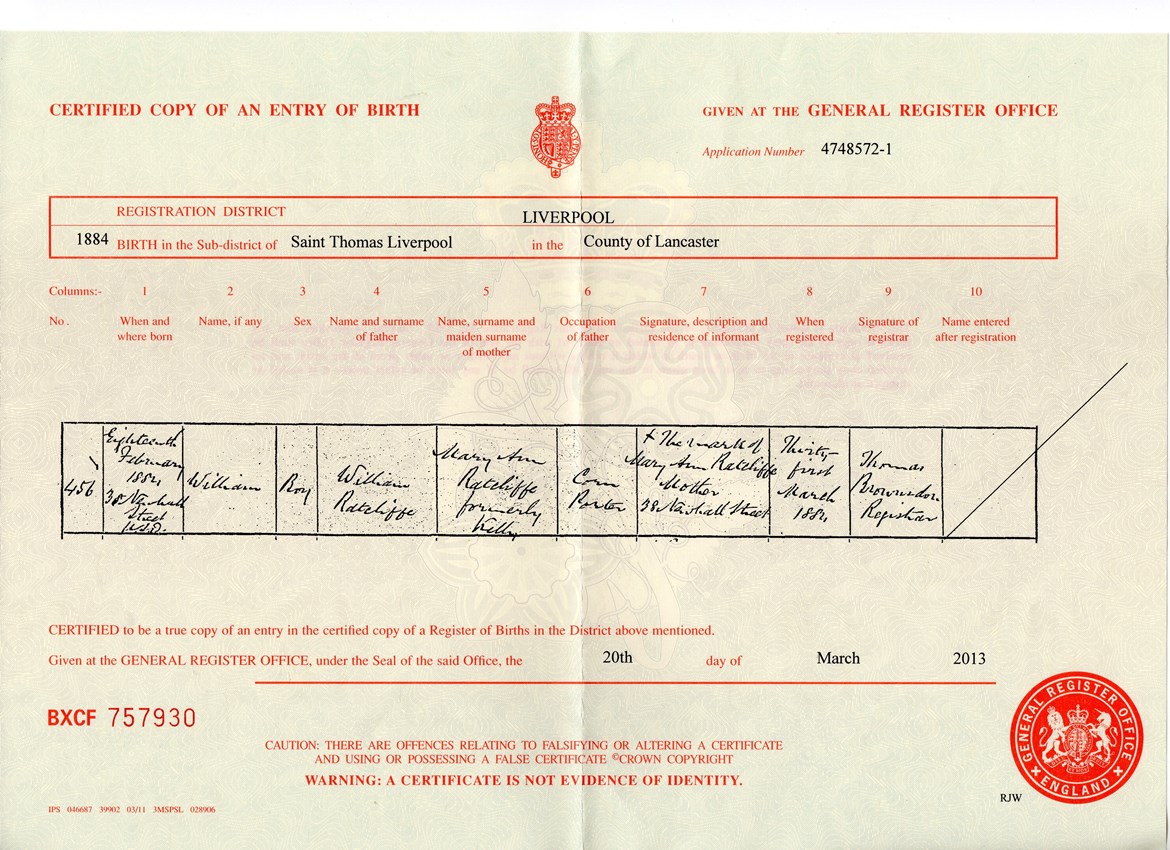 CERTIFIED COPY OF AN ENTRY OF BIRTH
GIVEN AT THE GENERAL REGISTER OFFICE
Application Number 4748572-1
REGISTRATION DISTRICT LIVERPOOL
1884 BIRTH in the Sub-district of Saint Thomas Liverpool in the County of Lancaster
Columns:- 1 2 3 4 5 6 7 8 9 10
No. When and where born
Name, if any
Sex
Name and surname of father
Name, surname and maiden surname of mother
Occupation of father
Signature, description and residence of informant
When registered
Signature of registrar
Name entered after registration
456
Eighteenth
February
1884
38
Street
William
Boy
William
Ratcliffe
Mary Ann
Ratcliffe
formerly
Kelly
Corn
Porter
X The mark of
Mary Ann Ratcliffe
Mother
38 Street
Thirty-
first
March
1884
Thomas
Registrar
CERTIFIED to be a true copy of an entry in the certified copy of a Register of Births in the District above mentioned.
Given at the GENERAL REGISTER OFFICE, under the Seal of the said Office, the 20th day of March 2013
BXCF 757930
CAUTION: THERE ARE OFFENCES RELATING TO FALSIFYING OR ALTERING A CERTIFICATE
AND USING OR POSSESSING A FALSE CERTIFICATE ©CROWN COPYRIGHT
WARNING: A CERTIFICATE IS NOT EVIDENCE OF IDENTITY.
GENERAL REGISTER OFFICE
ENGLAND
RJW
IPS 046687 39902 03/11 3MSPSL 028906